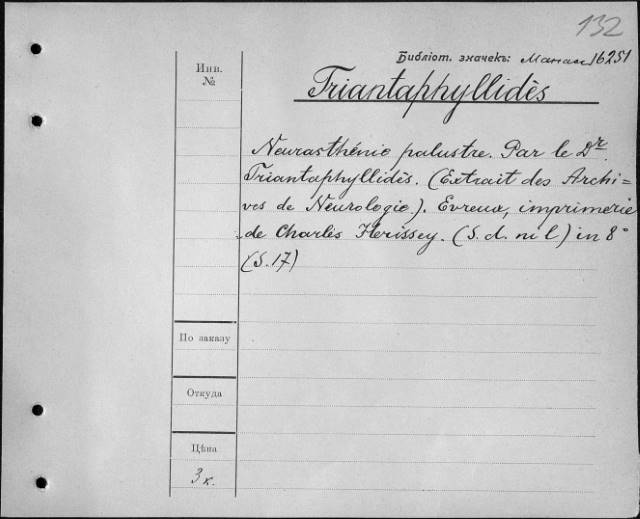 132
Библіот. значекъ: 16251
Инв.
№
Triantaphyllidès
Neurasthénie palustre. Par le Dr.
Triantaphyllidès. (Extrait des Archi=
ves de Neurologie). Evreux, imprimerie
de Charles Herissey. (S. d. ni l.) in 8°
(S. 17)
По заказу
Откуда
Цѣна
3 к.